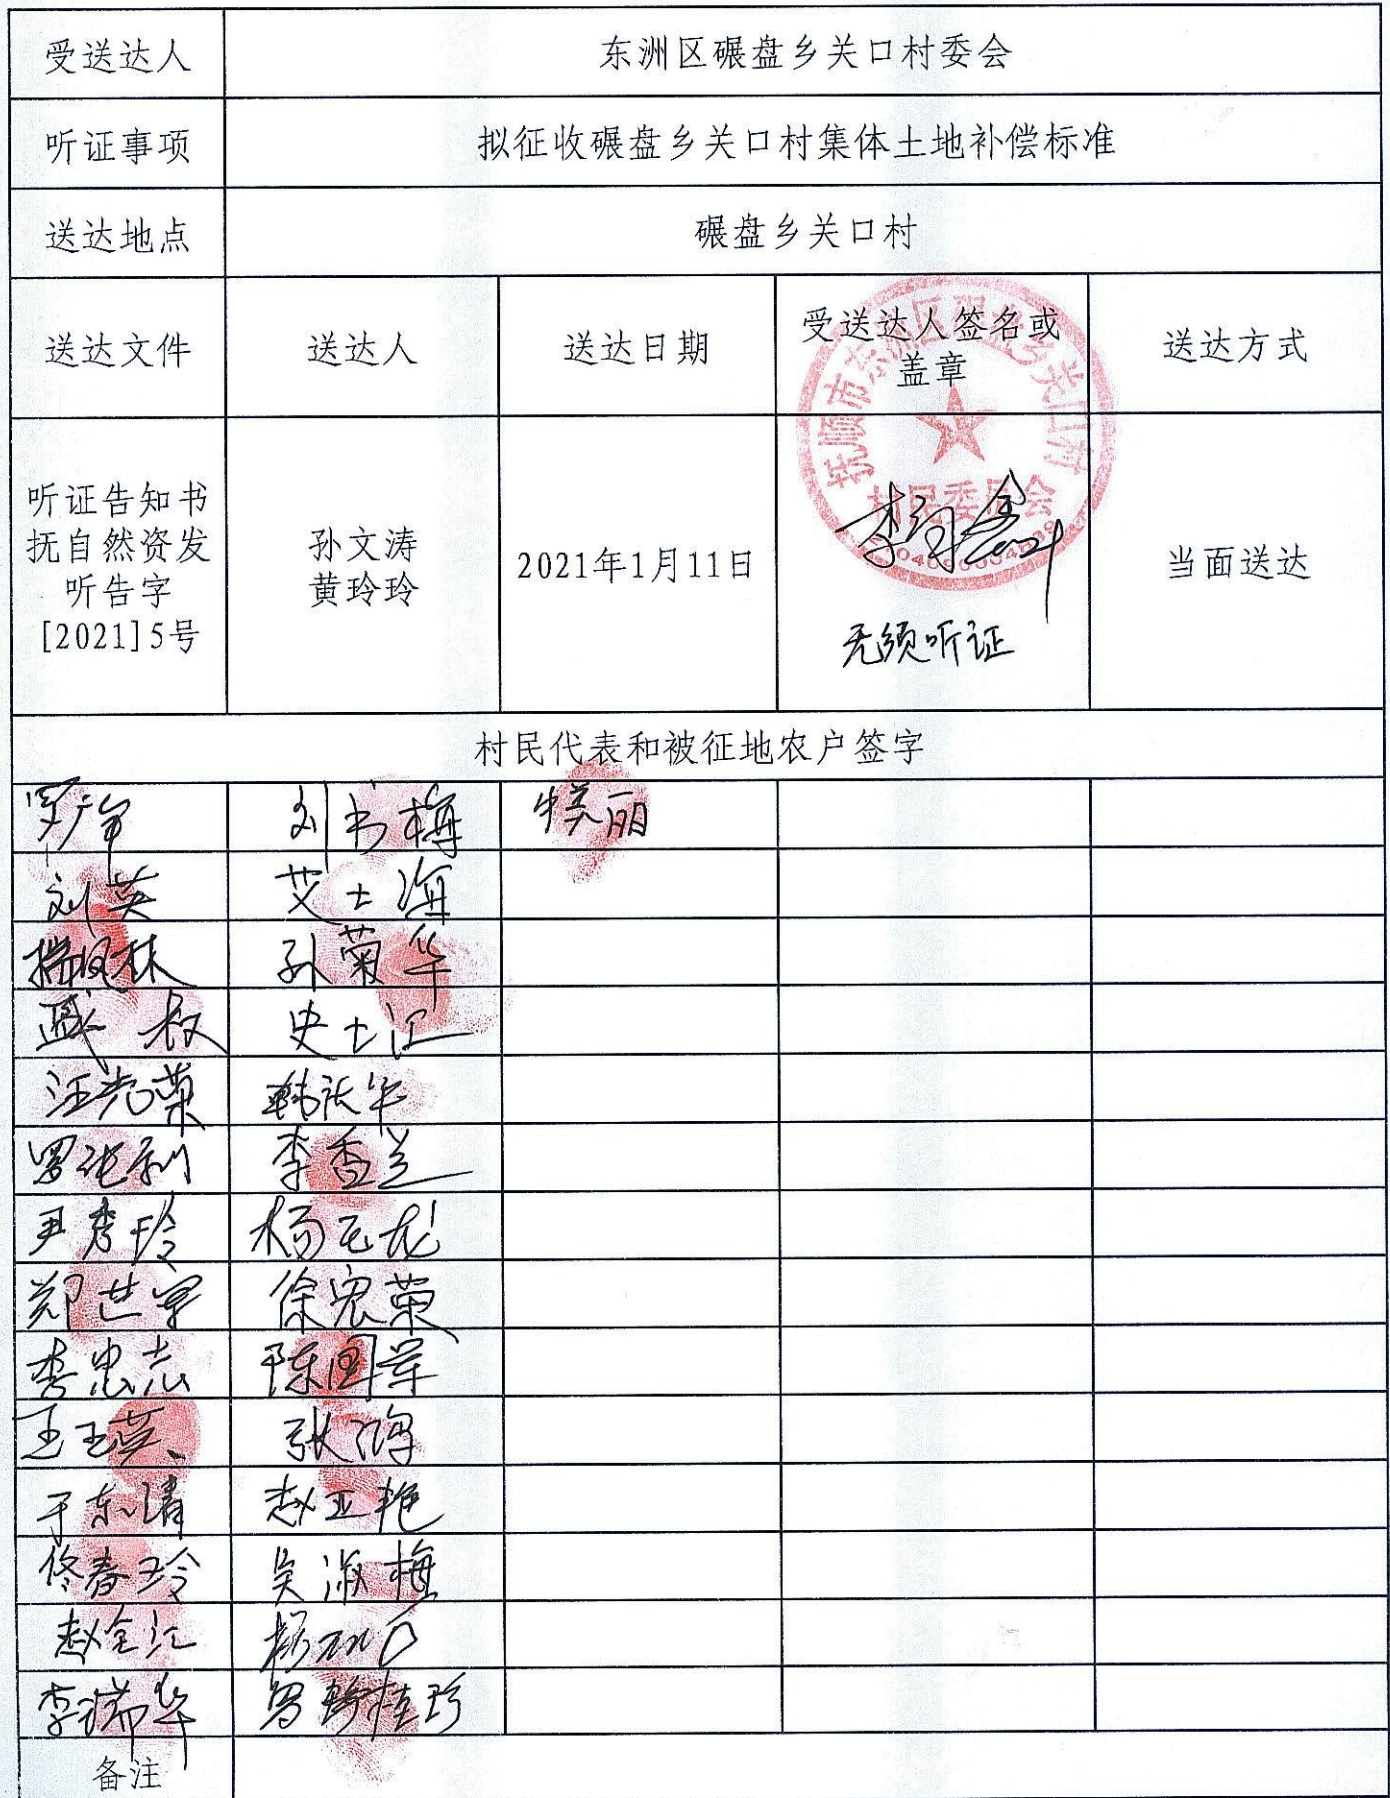 受送达人
东洲区碾盘乡关口村委会
听证事项
拟征收碾盘乡关口村集体土地补偿标准
送达地点
碾盘乡关口村
送达文件
送达人
送达日期
受送达人签名或
盖章
送达方式
听证告知书
抚自然资发
听告字
[2021]5号
孙文涛
黄玲玲
2021年1月11日
抚顺市东洲区碾盘乡关口村
村民委员会
无须听证
当面送达
村民代表和被征地农户签字
刘书梅
刘英
艾士海
孙菊华
史士江
汪光荣
韩庆华
李香兰
尹秀玲
郑世军
徐宏荣
李忠志
陈国军
王玉英
张鸿
于东清
赵亚艳
佟春玲
吴淑梅
赵全江
李瑞华
备注